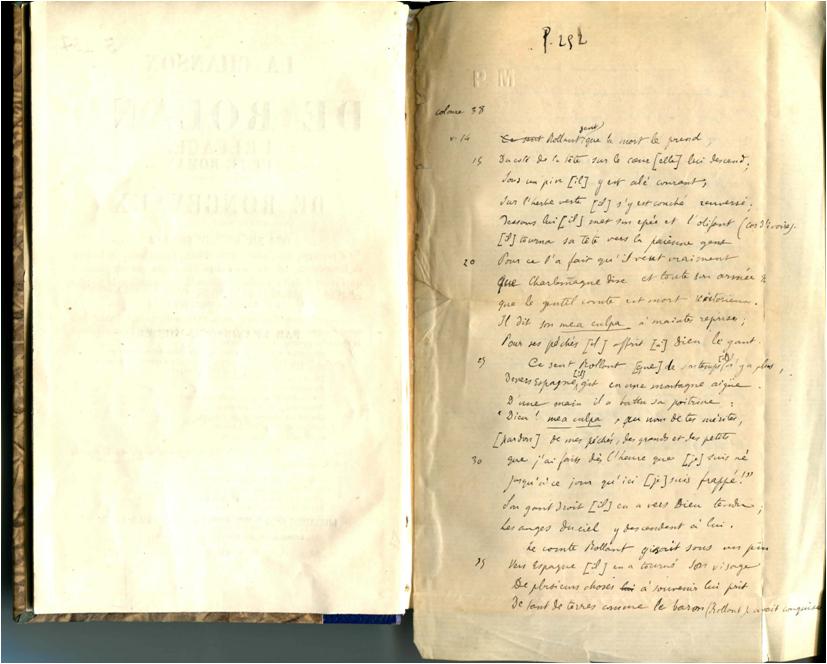 P. 292
P M
colonne 38
v. 14 Ce sent Rollant sent que la mort le prend,
15 Du côté de la tête sur le cœur [elle] lui descend,
Sous un pin [il] y est alé courant,
Sur l'herbe verte [il] s'y est couché renversé.
Dessous lui [il] met son epée et l'olifant (cor d'ivoire).
[Il] tourna sa tete vers la païenne gent
20 Pour ce l'a fait qu'il veut vraiment
Que Charlemagne dise et toute son armée
que le gentil comte est mort victorieux.
Il dit son mea culpa à maintes reprises;
Pour ses péchés [il] offrit [à] Dieu le gant.
25 Ce sent Rollant [que] de son temps [il] n'y a plus,
Devers Espagne [il] gît en une montagne aigüe.
D'une main il a battu sa poitrine:
"Dieu! mea culpa, au nom de tes mérites,
[pardon] de mes péchés, des grands et des petits
30 que j'ai faits dès l'heure que [je] suis né
jusqu'à ce jour qu'ici [je] suis frappé!"
Son gant droit [il] en a vers Dieu tendu;
Les anges du ciel y descendent à lui.
Le comte Rollant gisait sous un pin
35 Vers Espagne [il] en a tourné son visage
De plusieurs choses lui à souvenir lui prit
De tant de terres comme le baron (Rollant) avait conquises
LA CHANSON
DE ROLAND
DE RONCEVAUX